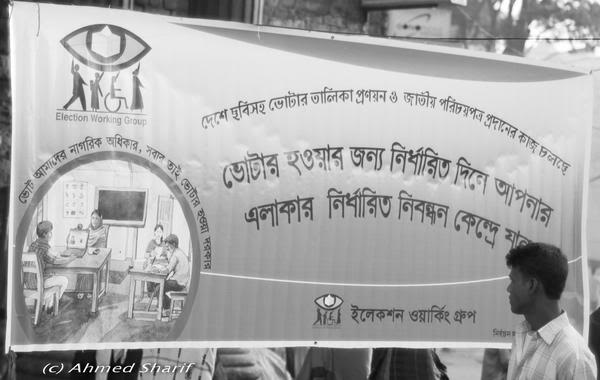 Election Working Group
দেশে ছবিসহ ভোটার তালিকা প্রণয়ন ও জাতীয় পরিচয়পত্র প্রদানের কাজ চলছে
ভোট আমাদের নাগরিক অধিকার, সবার তাই ভোটার হওয়া দরকার
ভোটার হওয়ার জন্য নির্ধারিত দিনে আপনার
এলাকার নির্ধারিত নিবন্ধন কেন্দ্রে যান
ইলেকশন ওয়ার্কিং গ্রুপ
(c) Ahmed Sharif